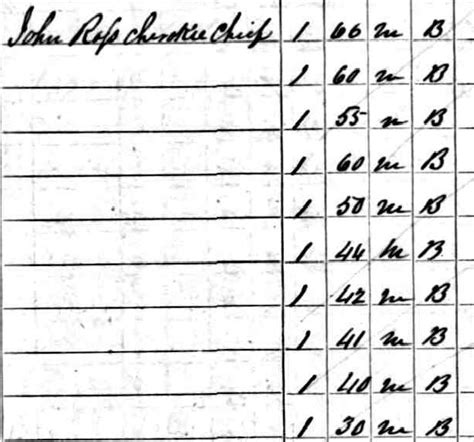 John Ross Cherokee Chief 1 66 m B
1 60 m B
1 55 m B
1 60 m B
1 50 m B
1 44 m B
1 42 m B
1 41 m B
1 40 m B
1 30 m B